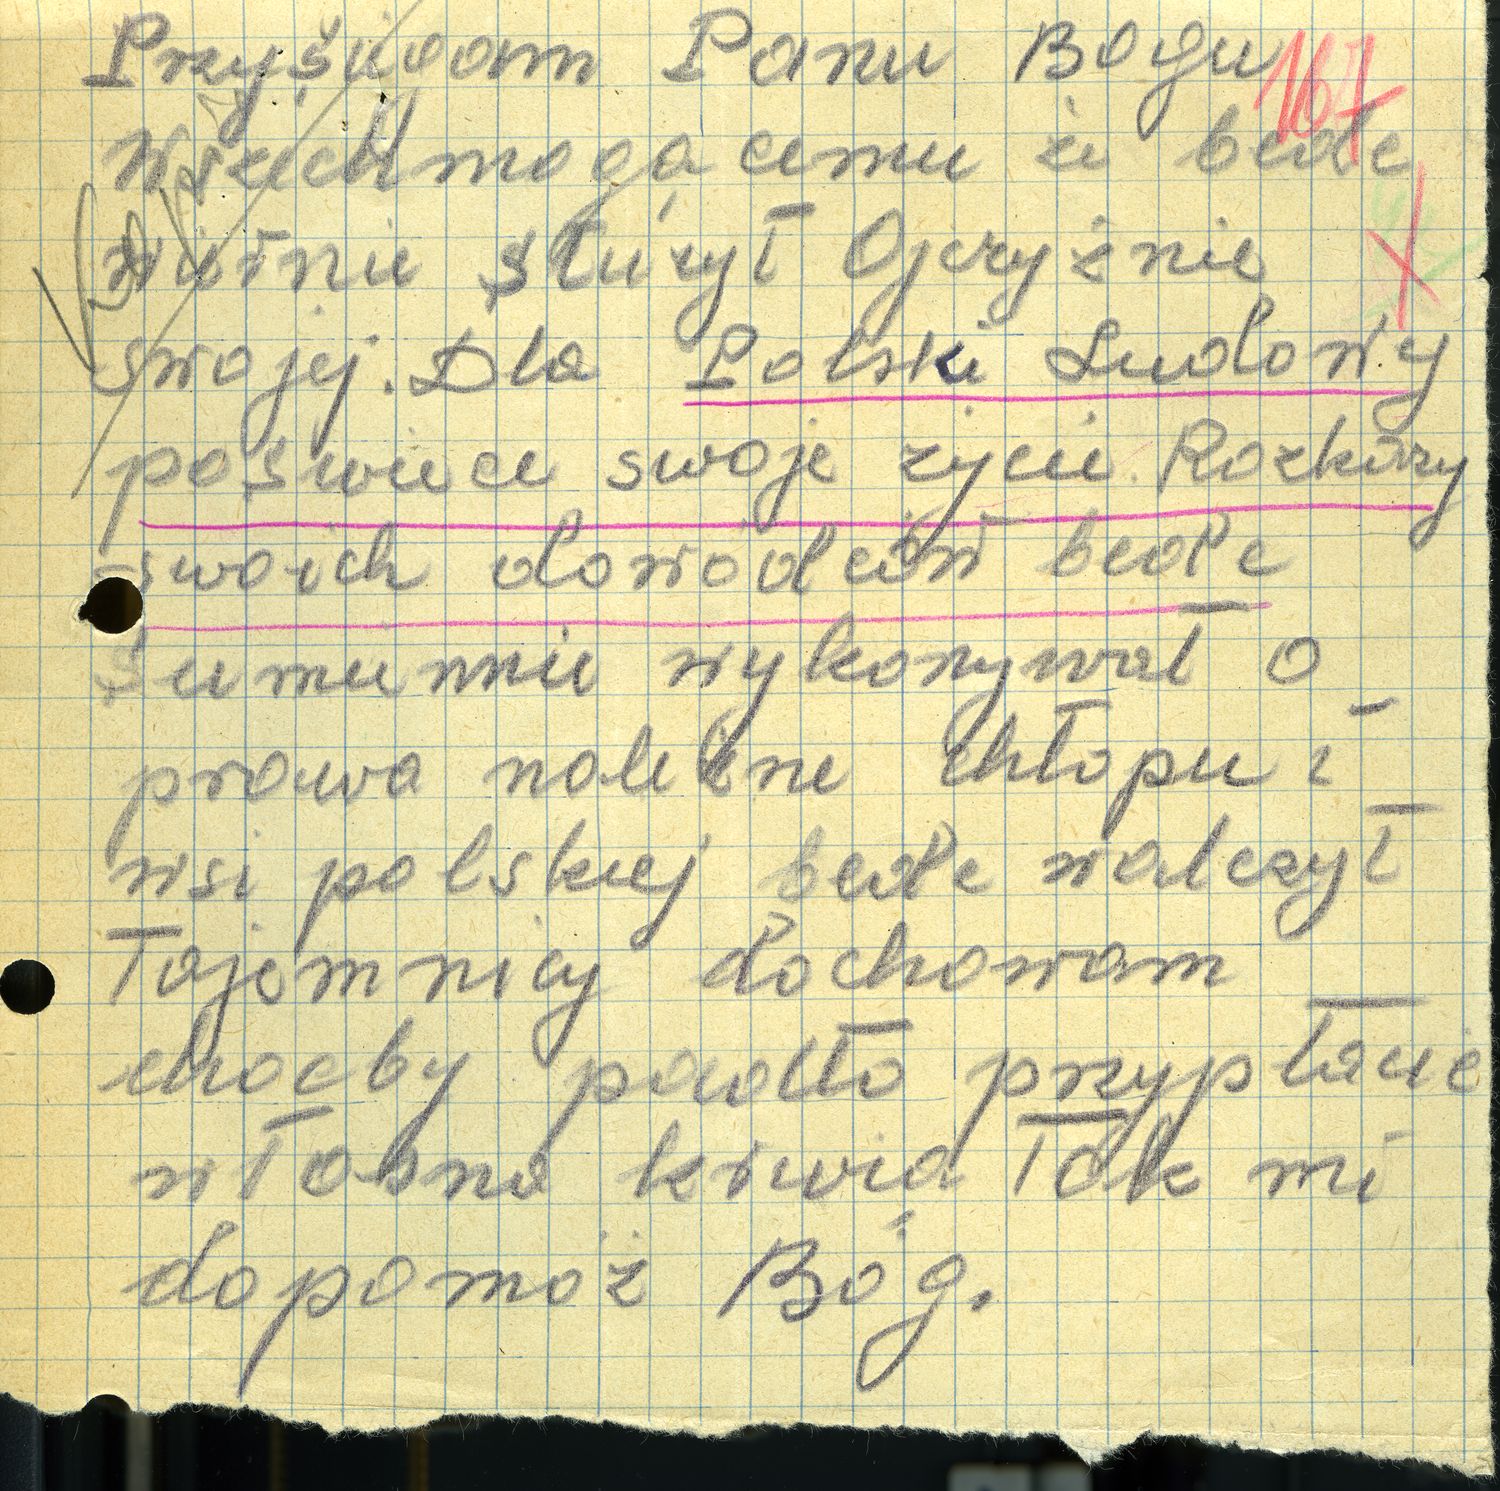 Przysięgam Panu Bogu
167
Wszechmogącemu że bede
wiernie służył Ojczyźnie
swojej. Dla Polski Ludowy
poświece swoje życie. Rozkazy
swoich dowódców bede
sumiennie wykonywał o
prawa należne chłopu i
wsi polskiej bede walczył
Tajemnicy dochowam
choćby padło przypłacić
włosna krwią Tak mi
dopomóż Bóg.